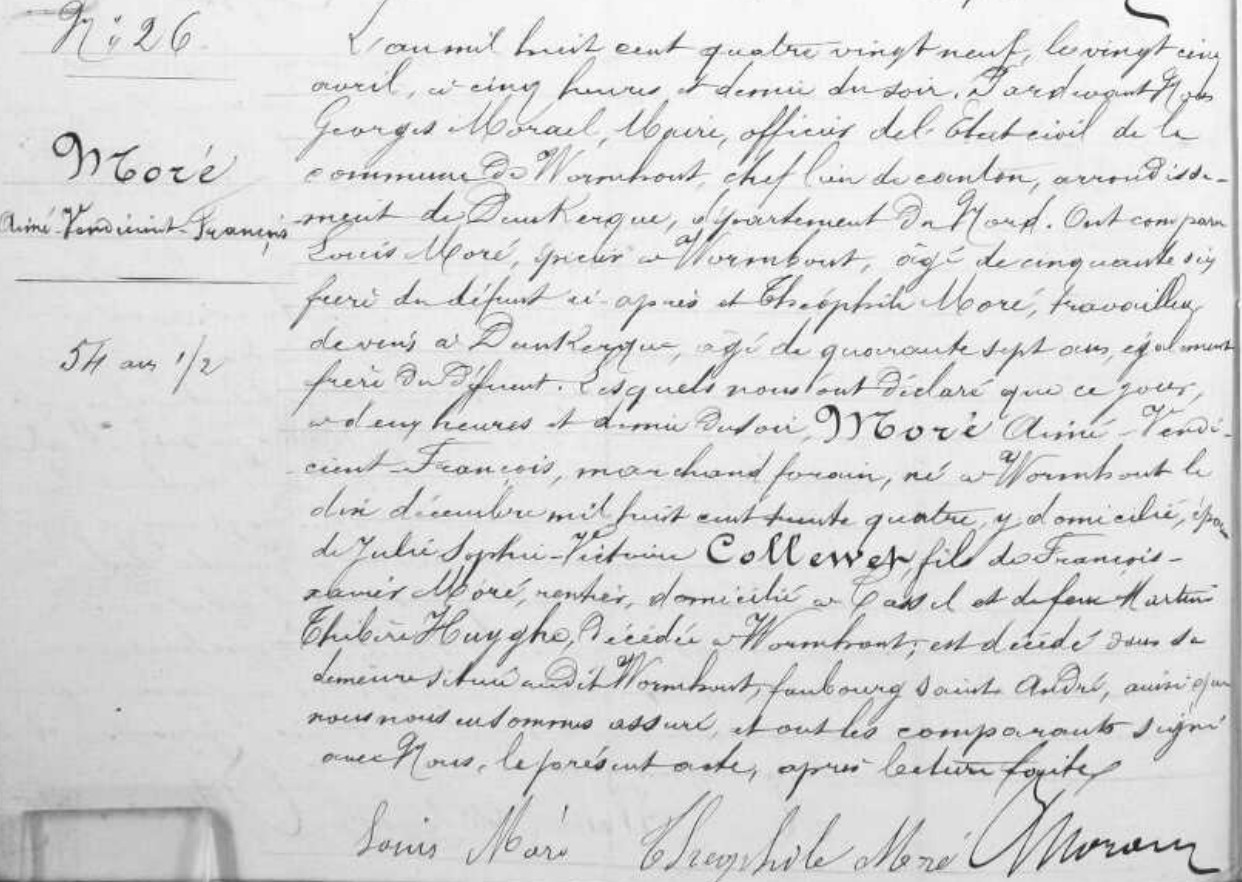 N° 26
Moré
Aimé-Vendicient-François
54 ans 1/2
L'an mil huit cent quatre vingt neuf, le vingt cinq
avril, à cinq heures et demie du soir. Pardevant Nous
Georges Morael, Maire, officier de l'Etat civil de la
commune de Wormhout, chef lieu de canton, arrondisse-
ment de Dunkerque, département du Nord. Ont comparu
Louis Moré, épicier à Wormhout, âgé de cinquante six
frère du défunt ci-après et Théophile Moré, travailleur
de vins à Dunkerque, âgé de quarante sept ans, également
frère du défunt. Lesquels nous ont déclaré que ce jour,
à deux heures et demie du soir, Moré Aimé-Vendi-
cient-François, marchand forain, né à Wormhout le
dix décembre mil huit cent trente quatre, y domicilié, époux
de Julie Sophie-Victoire Collewet, fils de François-
xavier Moré, rentier, domicilié à Cassel et de feue Martine
Huyghe, décédée à Wormhout; est décédé dans sa
demeure située audit Wormhout, faubourg Saint André, ainsi que
nous nous en sommes assuré, et ont les comparants signé
avec Nous, le présent acte, après lecture faite
Louis Moré Théophile Moré